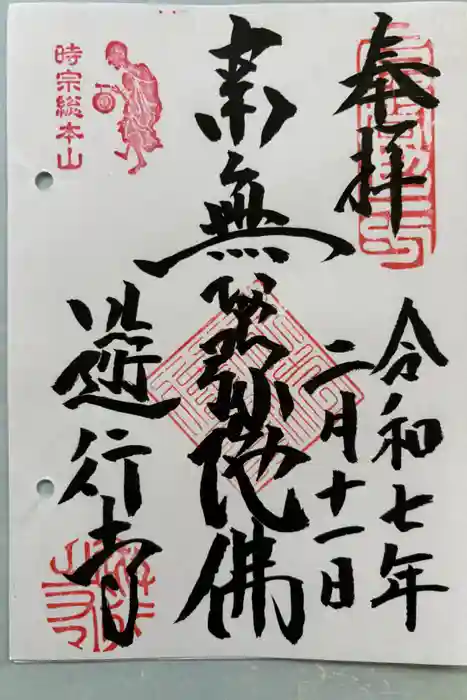 奉拝
令和七年
二月十一日
南無阿弥陀佛
時宗総本山
遊行寺